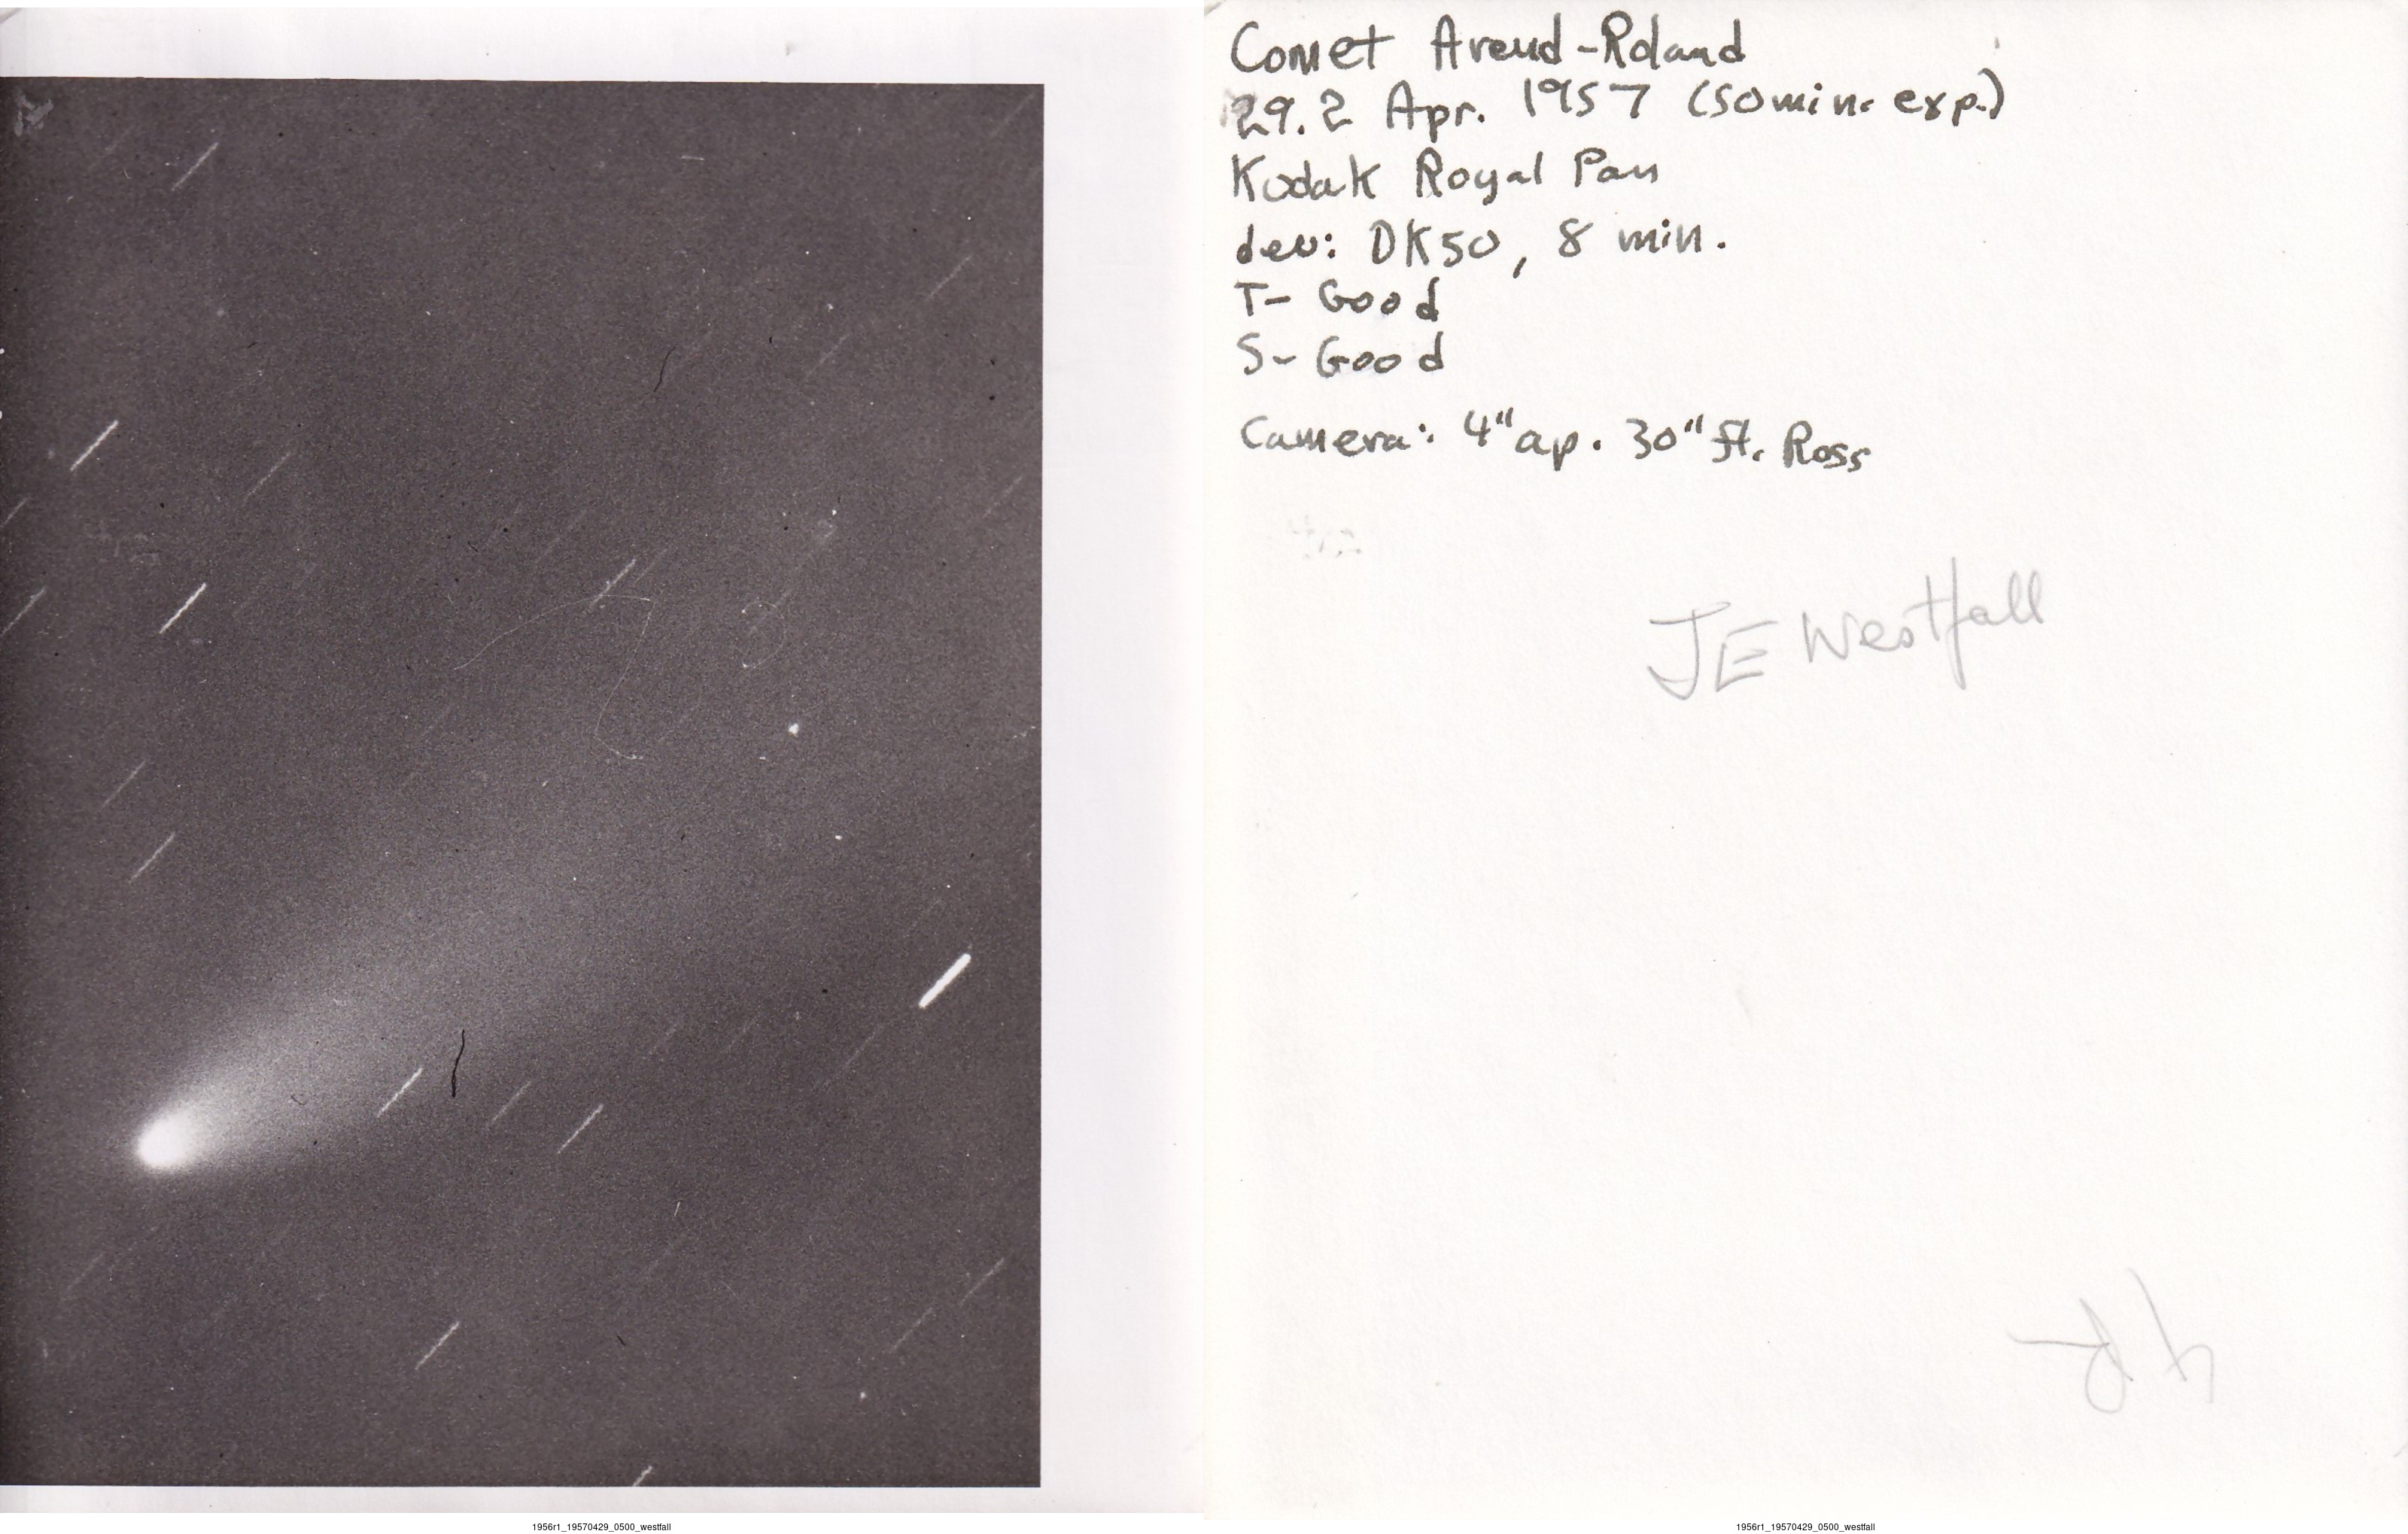 Comet Arend-Roland
29.2 Apr. 1957 (50 min. exp.)
Kodak Royal Pan
dev: DK50, 8 min.
T- Good
S- Good
Camera: 4" ap. 30" fl. Ross
JE Westfall
1956r1_19570429_0500_westfall
1956r1_19570429_0500_westfall